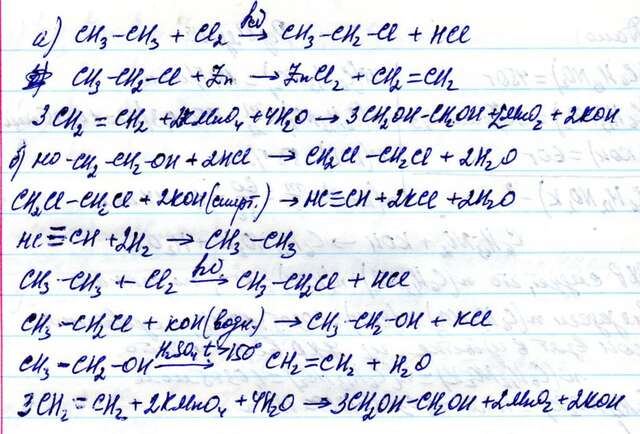 а) CH3-CH3 + Cl2 hν→ CH3-CH2-Cl + HCl
CH3-CH2-Cl + Zn → ZnCl2 + CH2=CH2
3CH2=CH2 + 2KMnO4 + 4H2O → 3CH2OH-CH2OH + 2MnO2 + 2KOH
б) HO-CH2-CH2-OH + 2HCl → CH2Cl-CH2Cl + 2H2O
CH2Cl-CH2Cl + 2KOH (спирт.) → HC≡CH + 2KCl + 2H2O
HC≡CH + 2H2 → CH3-CH3
CH3-CH3 + Cl2 hν→ CH3-CH2Cl + HCl
CH3-CH2Cl + KOH (водн.) → CH3-CH2-OH + KCl
CH3-CH2-OH H2SO4 t>150°→ CH2=CH2 + H2O
3CH2=CH2 + 2KMnO4 + 4H2O → 3CH2OH-CH2OH + 2MnO2 + 2KOH